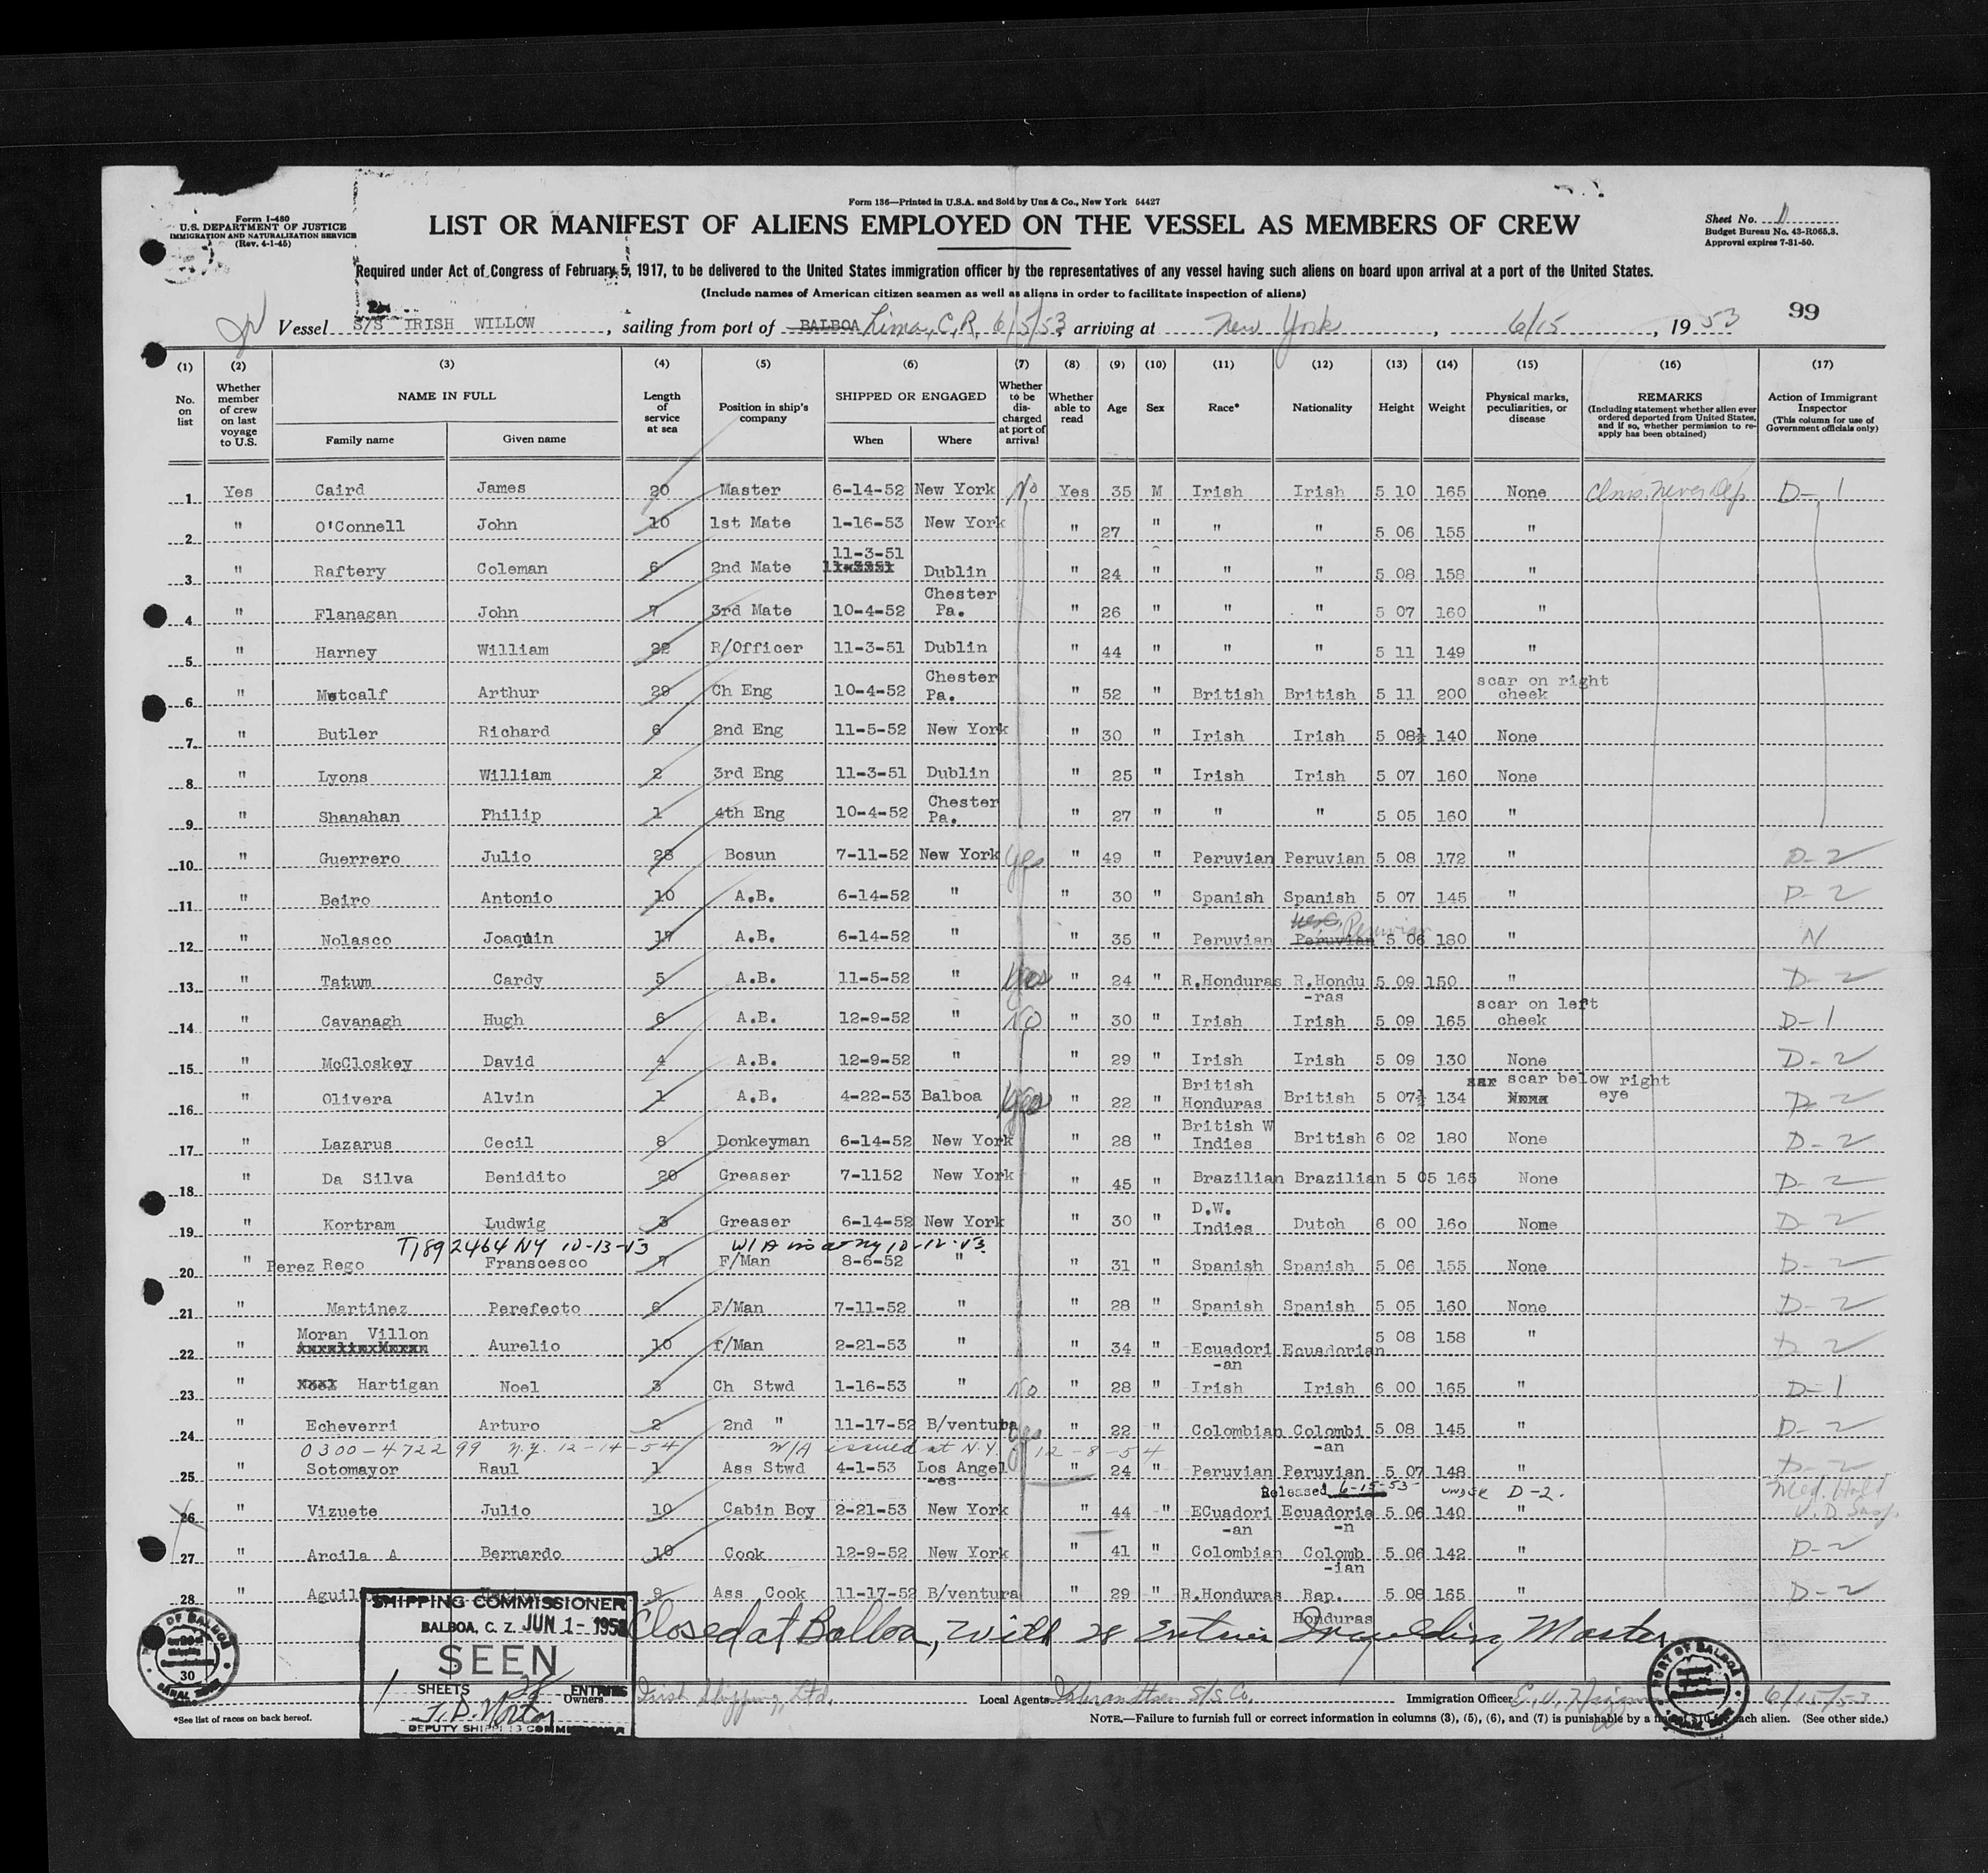 Form I-480
U.S. DEPARTMENT OF JUSTICE
IMMIGRATION AND NATURALIZATION SERVICE
(Rev. 4-1-45)
Form 136—Printed in U.S.A. and Sold by Unz & Co., New York 54427
LIST OR MANIFEST OF ALIENS EMPLOYED ON THE VESSEL AS MEMBERS OF CREW
Sheet No.
Budget Bureau No. 43-R065.3.
Approval expires 7-31-50.
Required under Act of Congress of February 5, 1917, to be delivered to the United States immigration officer by the representatives of any vessel having such aliens on board upon arrival at a port of the United States.
(Include names of American citizen seamen as well as aliens in order to facilitate inspection of aliens)
99
Vessel S/S IRISH WILLOW, sailing from port of BALBOA Lima, C.R. 6/5/53, arriving at New York, 6/15, 1953
(1) (2) (3) (4) (5) (6) (7) (8) (9) (10) (11) (12) (13) (14) (15) (16) (17)
No. on list
Whether member of crew on last voyage to U.S.
NAME IN FULL
Family name
Given name
Length of service at sea
Position in ship's company
SHIPPED OR ENGAGED
When
Where
Whether to be discharged at port of arrival
Whether able to read
Age
Sex
Race*
Nationality
Height
Weight
Physical marks, peculiarities, or disease
REMARKS
(Including statement whether alien ever ordered deported from United States, and if so, whether permission to reapply has been obtained)
Action of Immigrant Inspector
(This column for use of Government officials only)
1 Yes Caird James 20 Master 6-14-52 New York No Yes 35 M Irish Irish 5 10 165 None Clms. never Dep. D-1
2 " O'Connell John 10 1st Mate 1-16-53 New York " 27 " " " 5 06 155 "
11-3-51
3 " Raftery Coleman 6 2nd Mate Dublin " 24 " " " 5 08 158 "
4 " Flanagan John 7 3rd Mate 10-4-52 Chester Pa. " 26 " " " 5 07 160 "
5 " Harney William 22 R/Officer 11-3-51 Dublin " 44 " " " 5 11 149 "
6 " Metcalf Arthur 29 Ch Eng 10-4-52 Chester Pa. " 52 " British British 5 11 200 scar on right cheek
7 " Butler Richard 6 2nd Eng 11-5-52 New York " 30 " Irish Irish 5 08½ 140 None
8 " Lyons William 2 3rd Eng 11-3-51 Dublin " 25 " Irish Irish 5 07 160 None
9 " Shanahan Philip 1 4th Eng 10-4-52 Chester Pa. " 27 " " " 5 05 160 "
10 " Guerrero Julio 28 Bosun 7-11-52 New York Yes " 49 " Peruvian Peruvian 5 08 172 " D-2
11 " Beiro Antonio 10 A.B. 6-14-52 " " 30 " Spanish Spanish 5 07 145 " D-2
12 " Nolasco Joaquin 17 A.B. 6-14-52 " " 35 " Peruvian Peruvian Peruvian 5 06 180 " N
13 " Tatum Cardy 5 A.B. 11-5-52 " Yes " 24 " R.Honduras R.Hondu-ras 5 09 150 " D-2
14 " Cavanagh Hugh 6 A.B. 12-9-52 " No " 30 " Irish Irish 5 09 165 scar on left cheek D-1
15 " McCloskey David 4 A.B. 12-9-52 " " 29 " Irish Irish 5 09 130 None D-2
16 " Olivera Alvin 1 A.B. 4-22-53 Balboa Yes " 22 " British Honduras British 5 07½ 134 scar below right eye D-2
17 " Lazarus Cecil 8 Donkeyman 6-14-52 New York " 28 " British W Indies British 6 02 180 None D-2
18 " Da Silva Benidito 20 Greaser 7-1152 New York " 45 " Brazilian Brazilian 5 05 165 None D-2
19 " Kortram Ludwig 3 Greaser 6-14-52 New York " 30 " D.W. Indies Dutch 6 00 160 None D-2
T1892464 NY 10-13-53 W/A iss at NY 10-12-53
20 " Perez Rego Franscesco 7 F/Man 8-6-52 " " 31 " Spanish Spanish 5 06 155 None D-2
21 " Martinez Perefecto 6 F/Man 7-11-52 " " 28 " Spanish Spanish 5 05 160 None D-2
22 " Moran Villon Aurelio 10 f/Man 2-21-53 " " 34 " Ecuadori-an Ecuadorian 5 08 158 " D-2
23 " Hartigan Noel 3 Ch Stwd 1-16-53 " No " 28 " Irish Irish 6 00 165 " D-1
24 " Echeverri Arturo 2 2nd " 11-17-52 B/ventura Yes " 22 " Colombian Colombi-an 5 08 145 " D-2
0300-472299 N.Y. 12-14-54 W/A issued at N.Y. 12-8-54
25 " Sotomayor Raul 1 Ass Stwd 4-1-53 Los Angel-es " 24 " Peruvian Peruvian 5 07 148 " D-2
Released 6-15-53 under D-2.
26 " Vizuete Julio 10 Cabin Boy 2-21-53 New York " 44 " ECuadori-an Ecuadoria-n 5 06 140 " Med. Hold V.D. Susp.
27 " Arcila A Bernardo 10 Cook 12-9-52 New York " 41 " Colombian Colomb-ian 5 06 142 " D-2
28 " Aguil 9 Ass Cook 11-17-52 B/ventura " 29 " R.Honduras Rep. Honduras 5 08 165 " D-2
SHIPPING COMMISSIONER
BALBOA, C. Z. JUN 1-1953
SEEN
1 SHEETS 28 ENTRIES
DEPUTY SHIPPING COMMISSIONER
Closed at Balboa, with 28 Entries Master
PORT OF BALBOA
30
CANAL ZONE
PORT OF BALBOA
Owners Irish Shipping Ltd. Local Agents Isbrandtsen S/S Co. Immigration Officer 6/15/53
*See list of races on back hereof.
NOTE.—Failure to furnish full or correct information in columns (3), (5), (6), and (7) is punishable by a fine of $10 for each alien. (See other side.)